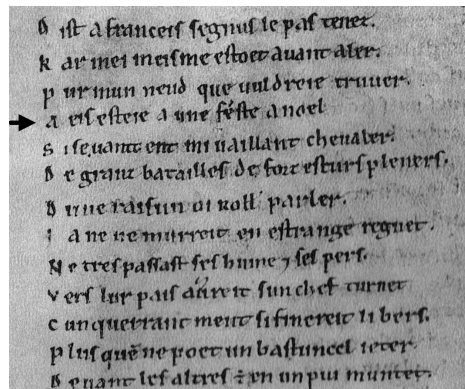 D ist a franceis segnus le pas tenez.
K ar mei meisme estoet auant aler.
P ur mun neud que uuldreie truuer.
A eis esteie a une feste anoel
S i seuantent mi uaillant cheualer.
D e granz batailles de forz esturs pleners.
D une raisun oi roll' parler.
I a ne ne murreit en estrange regnet.
N e trespassast ses hume ⁊ ses pers.
V ers lur pais aureit sun chef turnet
C unquerrantment si finereit li bers.
P lus quē ne poet un bastuncel ieter.
D euant les altres ē en un pui muntet.